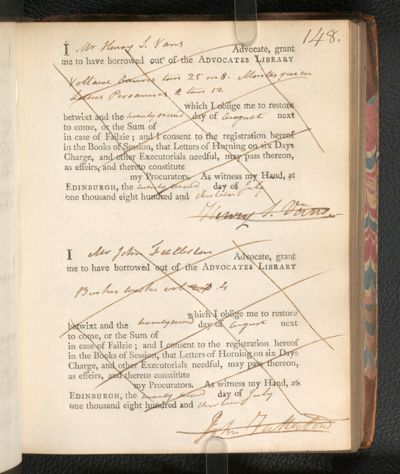 148.
I Mr Henry S. Vans Advocate, grant
me to have borrowed out of the ADVOCATES LIBRARY
Voltaire tom 25 in 8. Montesquieu
Lettres Persannes 2 tom 12
which I oblige me to restore
betwixt and the twenty second day of August next
to come, or the Sum of
in case of Failzie; and I consent to the registration hereof
in the Books of Session, that Letters of Horning on six Days
Charge, and other Executorials needful, may pass thereon,
as effeirs, and thereto constitute
my Procurators. As witness my Hand, at
EDINBURGH, the twenty second day of July
one thousand eight hundred and thirteen
Henry S. Vans
I Mr John Fullerton Advocate, grant
me to have borrowed out of the ADVOCATES LIBRARY
Burkes works vol 4
which I oblige me to restore
betwixt and the twenty second day of August next
to come, or the Sum of
in case of Failzie; and I consent to the registration hereof
in the Books of Session, that Letters of Horning on six Days
Charge, and other Executorials needful, may pass thereon,
as effeirs, and thereto constitute
my Procurators. As witness my Hand, at
EDINBURGH, the twenty second day of July
one thousand eight hundred and thirteen
John Fullerton